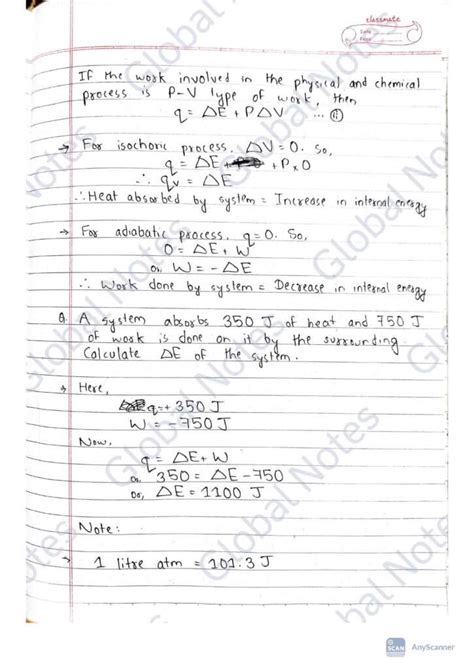 classmate
Date
Page
If the work involved in the physical and chemical
process is P-V type of work, then
q = ΔE + PΔV ... ⑪
→ For isochoric process, ΔV = 0. So,
q = ΔE + P×0
∴ qv = ΔE
∴ Heat absorbed by system = Increase in internal energy
→ For adiabatic process, q = 0. So,
0 = ΔE + W
or, W = -ΔE
∴ Work done by system = Decrease in internal energy
Q. A system absorbs 350 J of heat and 750 J
of work is done on it by the surrounding.
Calculate ΔE of the system.
→ Here,
q = + 350 J
W = - 750 J
Now,
q = ΔE + W
or, 350 = ΔE - 750
or, ΔE = 1100 J
Note:
→ 1 litre atm = 101.3 J
Global Notes
SCAN AnyScanner